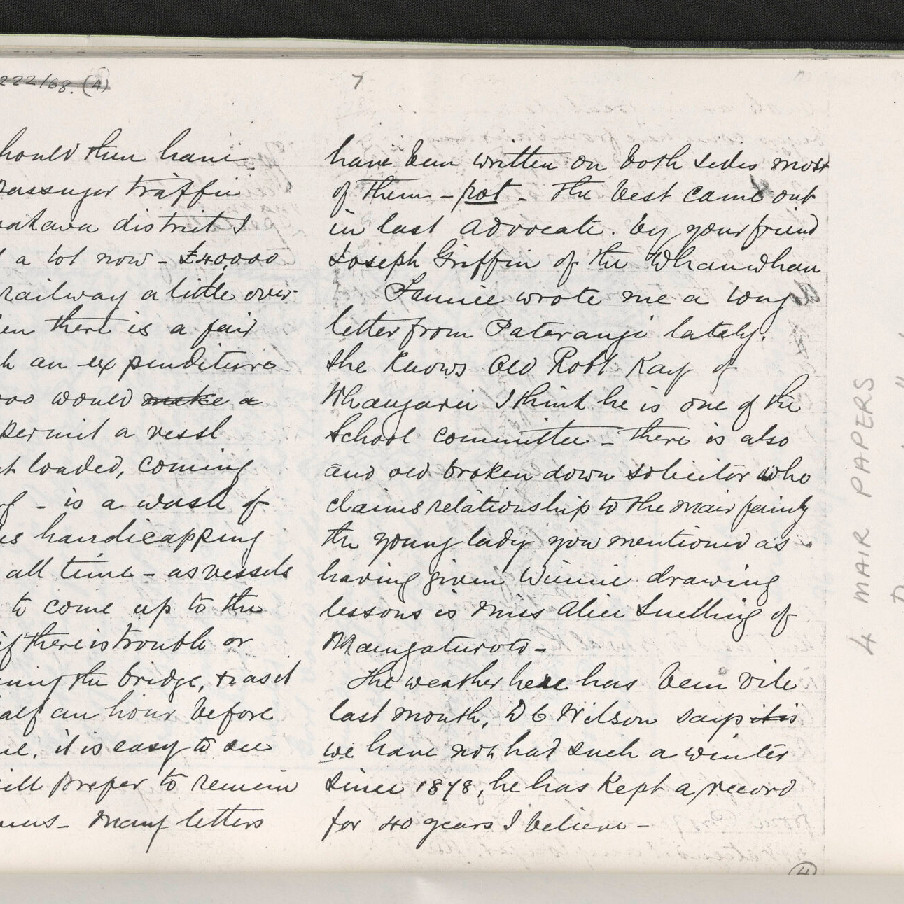 222/68. (4)
7
should then have
passenger traffic
district I
a lot now - £40,000
railway a little over
there is a fair
an expenditure
would make a
permit a vessl
loaded, coming
- is a wash of
handicapping
all time - as vessels
to come up to the
if there is trouble or
the bridge, & as it
half an hour before
it is easy to see
will prefer to remain
Many letters
have been written on both sides most
of them - rot - The best came out
in last advocate. by your friend
Joseph Griffin of the Whauwhau
Fannie wrote me a long
letter from Paterangi lately.
She knows Old Robt Kay of
Whangarei I think he is one of the
School committee - there is also
and old broken down solicitor who
claims relationship to the Mair family
the young lady you mentioned as
having given Winnie drawing
lessons is Miss Alice Snelling of
Maungaturoto -
The weather here has been vile
last month, D C Wilson says it is
we have not had such a winter
since 1878, he has kept a record
for 40 years I believe -
4
4 MAIR PAPERS